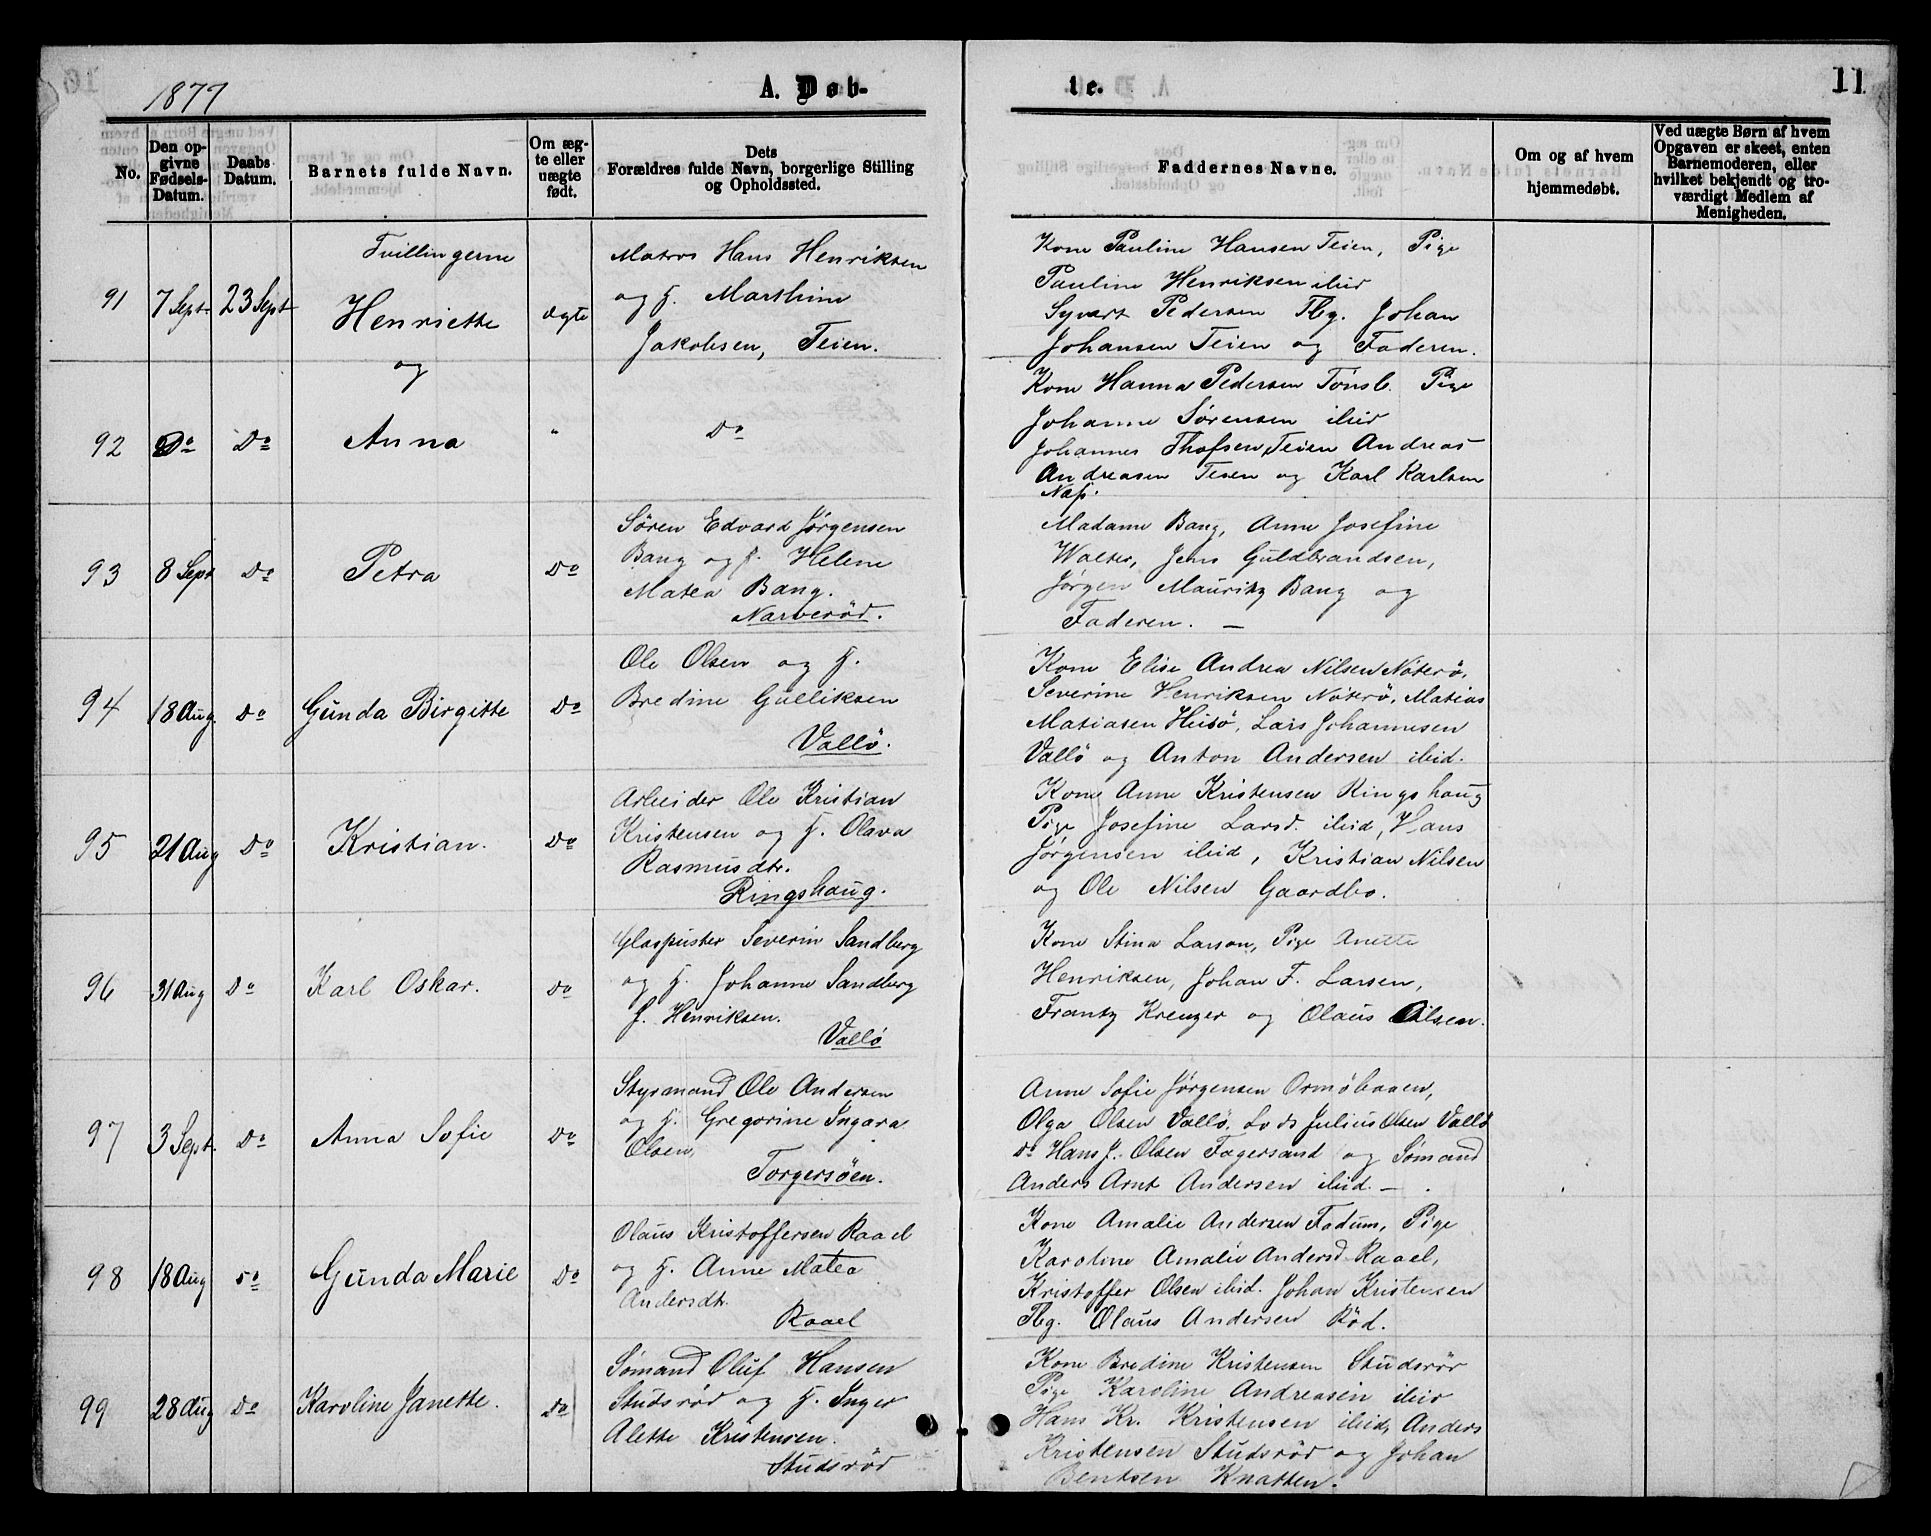 1877
A. Døb-
te.
11
No.
Den opgivne Fødsels-Datum.
Daabs Datum.
Barnets fulde Navn.
Om ægte eller uægte født.
Dets Forældres fulde Navn, borgerlige Stilling og Opholdssted.
Faddernes Navne.
Om og af hvem hjemmedøbt.
Ved uægte Børn af hvem Opgaven er skeet, enten Barnemoderen, eller hvilket bekjendt og troværdigt Medlem af Menigheden.
91 7 Sept. 23 Sept
Tvillingerne
Henriette
og
ægte
Matros Hans Henriksen
og H. Marthine
Jakobsen, Teien.
Kone Pauline Hansen Teien, Pige
Pauline Henriksen ibid
Syvert Pedersen Tbg. Johan
Johansen Teien og Faderen.
92 Do Do Anna " Do
Kone Hanna Pedersen Tönsb. Pige
Johanne Sørensen ibid
Johannes Thofsen, Teien Andreas
Andreasen Teien og Karl Karlsen
Næs.
93 8 Sept Do Petra Do
Søren Edvard Jørgensen
Bang og H. Helene
Matea Bang.
Narveröd.
Madame Bang, Anne Josefine
Walter, Jens Guldbrandsen,
Jørgen Mauritz Bang og
Faderen. —
94 18 Aug. Do Gunda Birgitte Do
Ole Olsen og H.
Bredine Gulliksen
Vallö.
Kone Elise Andrea Nilsen Nöterö,
Severine Henriksen Nöterö, Matias
Matiasen Husö, Lars Johannesen
Vallö og Anton Andersen ibid.
95 21 Aug Do Kristian. Do
Arbeider Ole Kristian
Kristensen og H. Olava
Rasmusdtr.
Ringshaug.
Kone Anne Kristensen Ringshaug
Pige Josefine Larsd. ibid, Hans
Jørgensen ibid, Kristian Nilsen
og Ole Nilsen Gaardbo.
96 31 Aug Do Karl Oskar. Do
Glaspuster Severin Sandberg
og H. Johanne Sandberg
f. Henriksen.
Vallö
Kone Stina Larson, Pige Anette
Henriksen, Johan F. Larsen,
Frantz Kreuzer og Olaus Nilsen.
97 3 Sept. Do Anna Sofie Do
Styrmand Ole Andersen
og H. Gregorine Ingara
Olsen,
Torgersöen.
Anne Sofie Jørgensen Ormöbaaen,
Olga Olsen Vallö, Lods Julius Olsen Vallö
Do Hans J. Olsen Fagersand og Sømand
Anders Arnt Andersen ibid. —
98 18 Aug Do Gunda Marie Do
Olaus Kristoffersen Raael
og H. Anne Matea
Andersdtr.
Raael
Kone Amalie Andersen Fadum, Pige
Karoline Amalie Andersd. Raael,
Kristoffer Olsen ibid. Johan Kristensen
Tbg. Olaus Andersen Röd.
99 28 Aug Do Karoline Janette. Do
Sømand Oluf Hansen
Studsröd og H. Inger
Alette Kristensen.
Studsröd
Kone Bredine Kristensen Studsröd
Pige Karoline Andreasen ibid
Hans Kr. Kristensen ibid, Anders
Kristensen Studsröd og Johan
Bentsen Knatten.